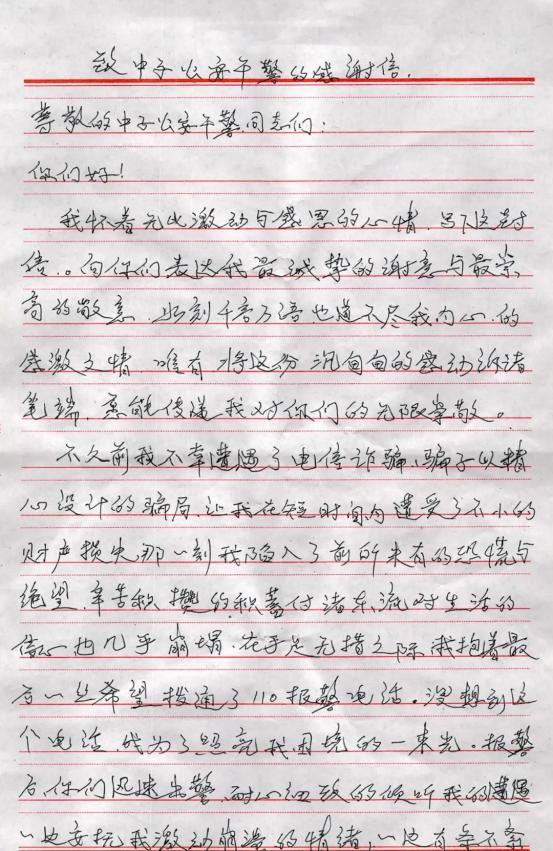 致中子公安干警的感谢信.
尊敬的中子公安干警同志们:
你们好!
我怀着无比激动与感恩的心情,写下这封
信。向你们表达我最诚挚的谢意与最崇
高的敬意.此刻千言万语也道不尽我内心的
感激之情,唯有将这份沉甸甸的感动诉诸
笔端,愿能传递我对你们的无限崇敬。
不久前我不幸遭遇了电信诈骗,骗子以精
心设计的骗局,让我在短时间内遭受了不小的
财产损失那一刻我陷入了前所未有的恐慌与
绝望,辛苦积攒的积蓄付诸东流对生活的
信心也几乎崩塌.在手足无措之际,我抱着最
后一丝希望拨通了110报警电话。没想到这
个电话成为了照亮我困境的一束光。报警
后,你们迅速出警,耐心细致的倾听我的遭遇
一边安抚我激动崩溃的情绪,一边有条不紊